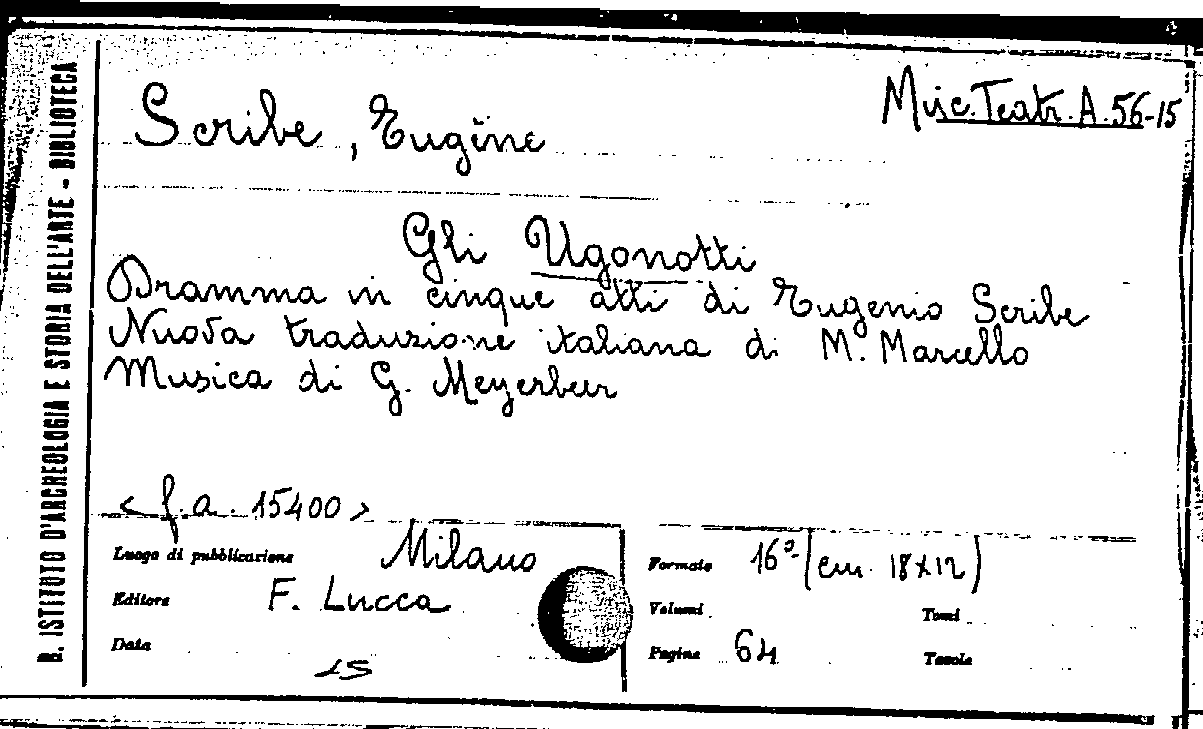 Scribe, Eugène
Misc. Teatr. A. 56-15
Gli Ugonotti
Dramma in cinque atti di Eugenio Scribe
Nuova traduzione italiana di M. Marcello
Musica di G. Meyerbeer
< f. a. 15400 >
Luogo di pubblicazione Milano
Editore F. Lucca
Data
15
Formato 16° (cm. 18x12)
Volumi Tomi
Pagine 64 Tavole
B. ISTITUTO D'ARCHEOLOGIA E STORIA DELL'ARTE - BIBLIOTECA